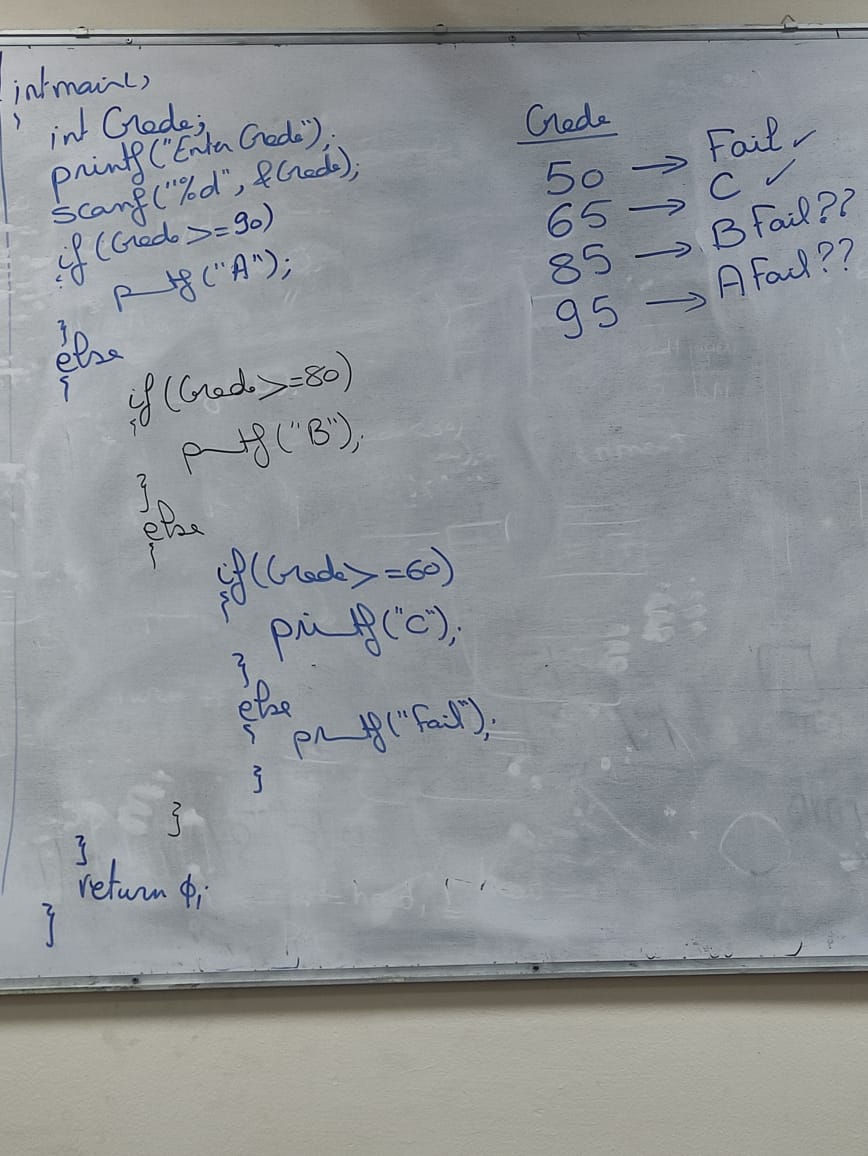 int main()
{
int Grade;
printf("Enter Grade");
scanf("%d", &Grade);
if(Grade>=90)
{
printf("A");
}
else
{
if(Grade>=80)
{
printf("B");
}
else
{
if(Grade>=60)
{
printf("C");
}
else
{
printf("Fail");
}
}
}
return 0;
}
Grade
50 → Fail ✓
65 → C ✓
85 → B Fail??
95 → A Fail??